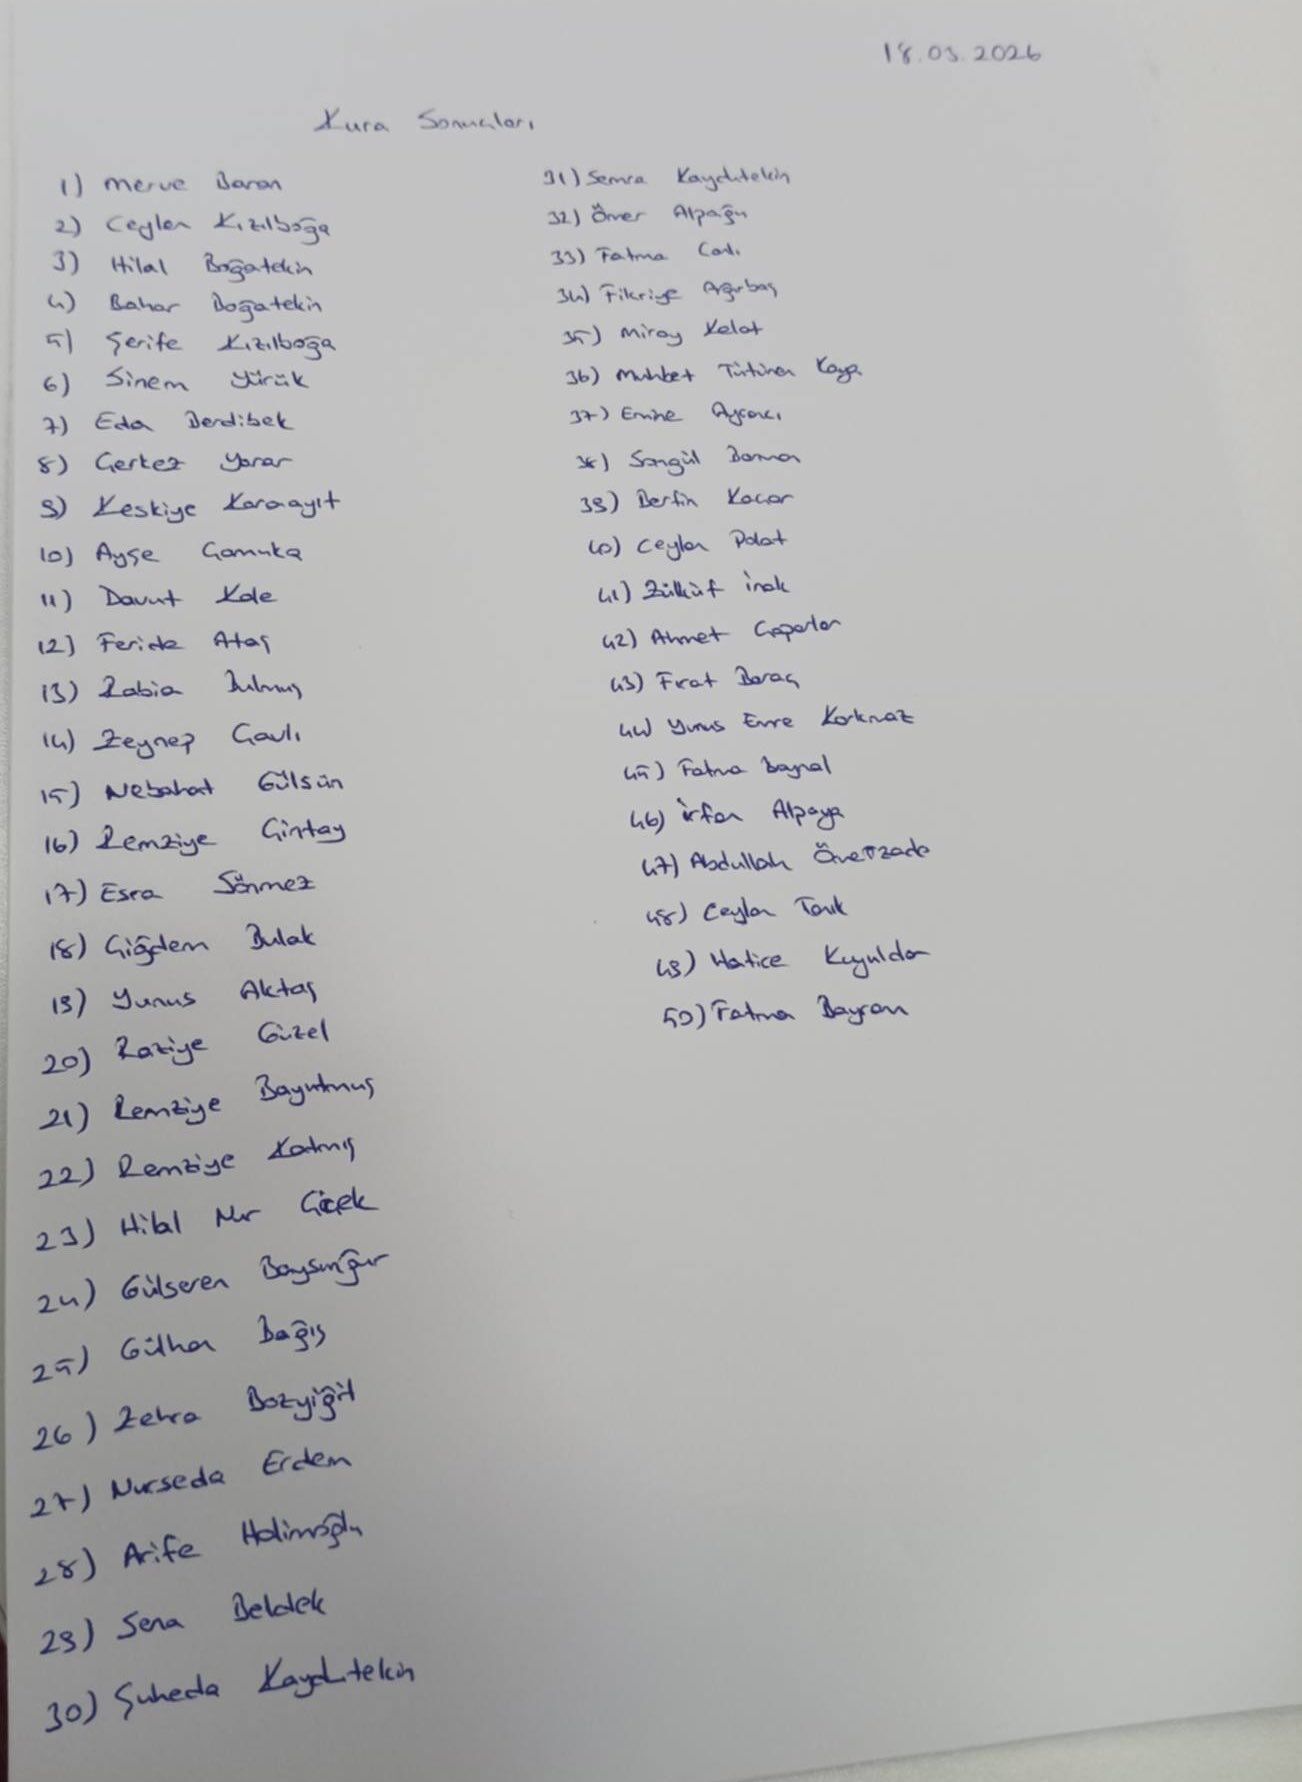 18.03.2026
Kura Sonuçları
1) Merve Baran
2) Ceylan Kızılboğa
3) Hilal Boğatekin
4) Bahar Boğatekin
5) Şerife Kızılboğa
6) Sinem Yürük
7) Eda Derdibek
8) Çerkez Yarar
9) Keskiye Karaayıt
10) Ayşe Çamuka
11) Davut Kale
12) Feride Ataş
13) Rabia Bulmuş
14) Zeynep Çavlı
15) Nebahat Gülsün
16) Remziye Çintay
17) Esra Sönmez
18) Çiğdem Bulak
19) Yunus Aktaş
20) Raziye Güzel
21) Remziye Bayutmuş
22) Remziye Katmış
23) Hilal Nur Çiçek
24) Gülseren Baysunğur
25) Gülhan Bağış
26) Zehra Bozyiğit
27) Nurseda Erdem
28) Arife Halimoğlu
29) Sena Beldek
30) Şuheda Kaydıtekin
31) Semra Kaydıtekin
32) Ömer Alpağu
33) Fatma
34) Fikriye Ağırbaş
35) Miray Kelat
36) Muhbet Kaya
37) Emine Ayrancı
38) Songül Baman
39) Berfin Kaçar
40) Ceylan Polat
41) Zülküf İnak
42) Ahmet Çaparlar
43) Fırat Baraç
44) Yunus Emre Korkmaz
45) Fatma Baynal
46) İrfan Alpaya
47) Abdullah Ömerzade
48) Ceylan Tarık
49) Hatice Kuyuldar
50) Fatma Bayram